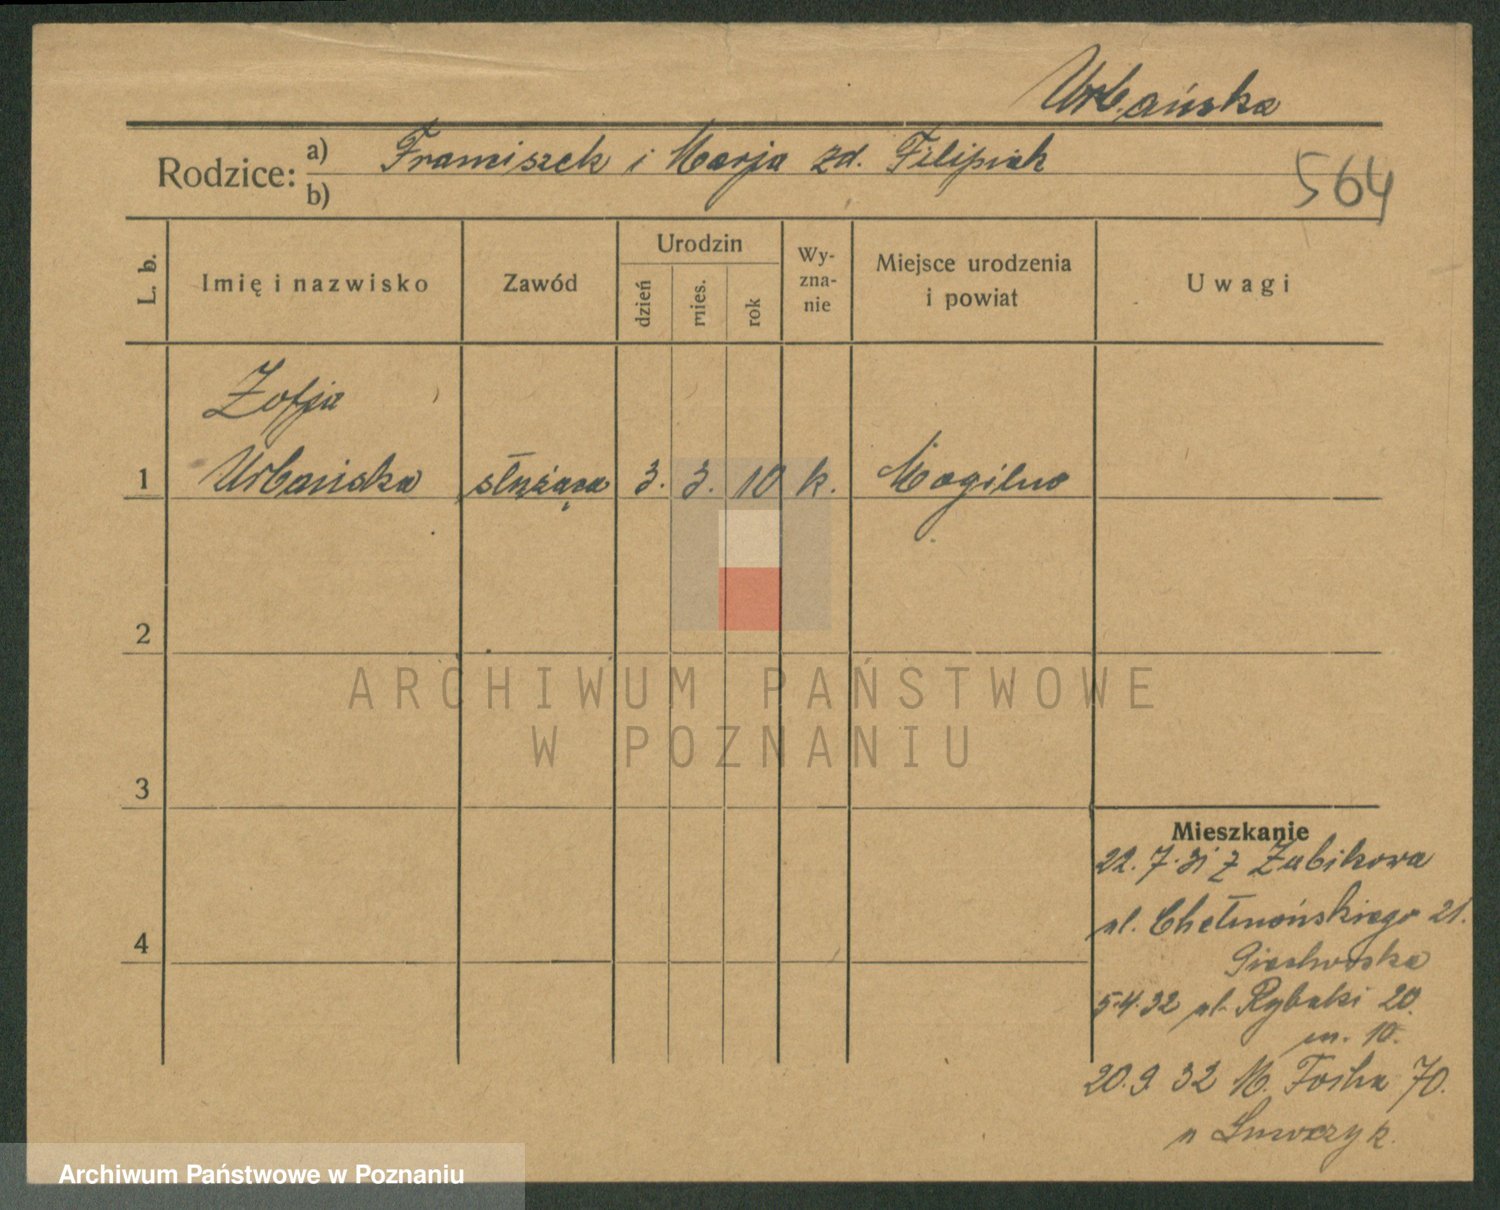 Urbańska
Rodzice: a) Franciszek i Marja zd. Filipiak
b)
564
L. b.
Imię i nazwisko
Zawód
Urodzin
dzień
mies.
rok
Wy-
zna-
nie
Miejsce urodzenia
i powiat
Uwagi
Zofja
1 Urbańska służąca 3. 3. 10 k. Mogilno
2
ARCHIWUM PAŃSTWOWE
W POZNANIU
3
Mieszkanie
22.7.31 z Żabikowa
ul. Chełmońskiego 21.
4
5.4.32 ul. Rybaki 20.
m. 10.
20.9.32 M. Focha 70.
Archiwum Państwowe w Poznaniu